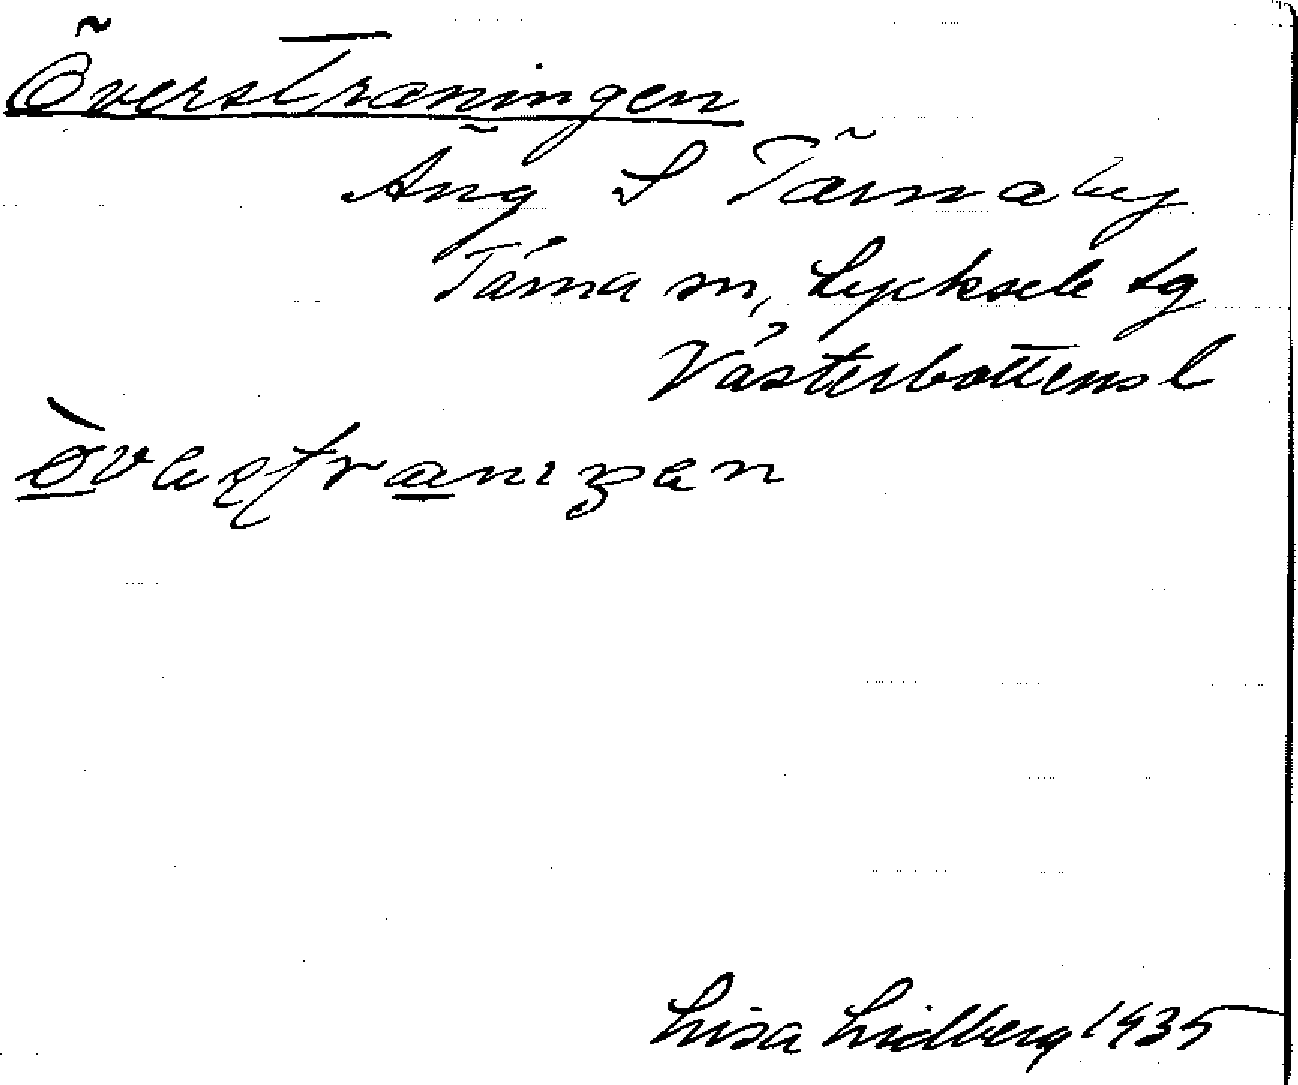 Överstraningen
Äng S Tärnaby
Tärna sn, Lycksele lg
Västerbottens l
Lisa Lidberg 1935